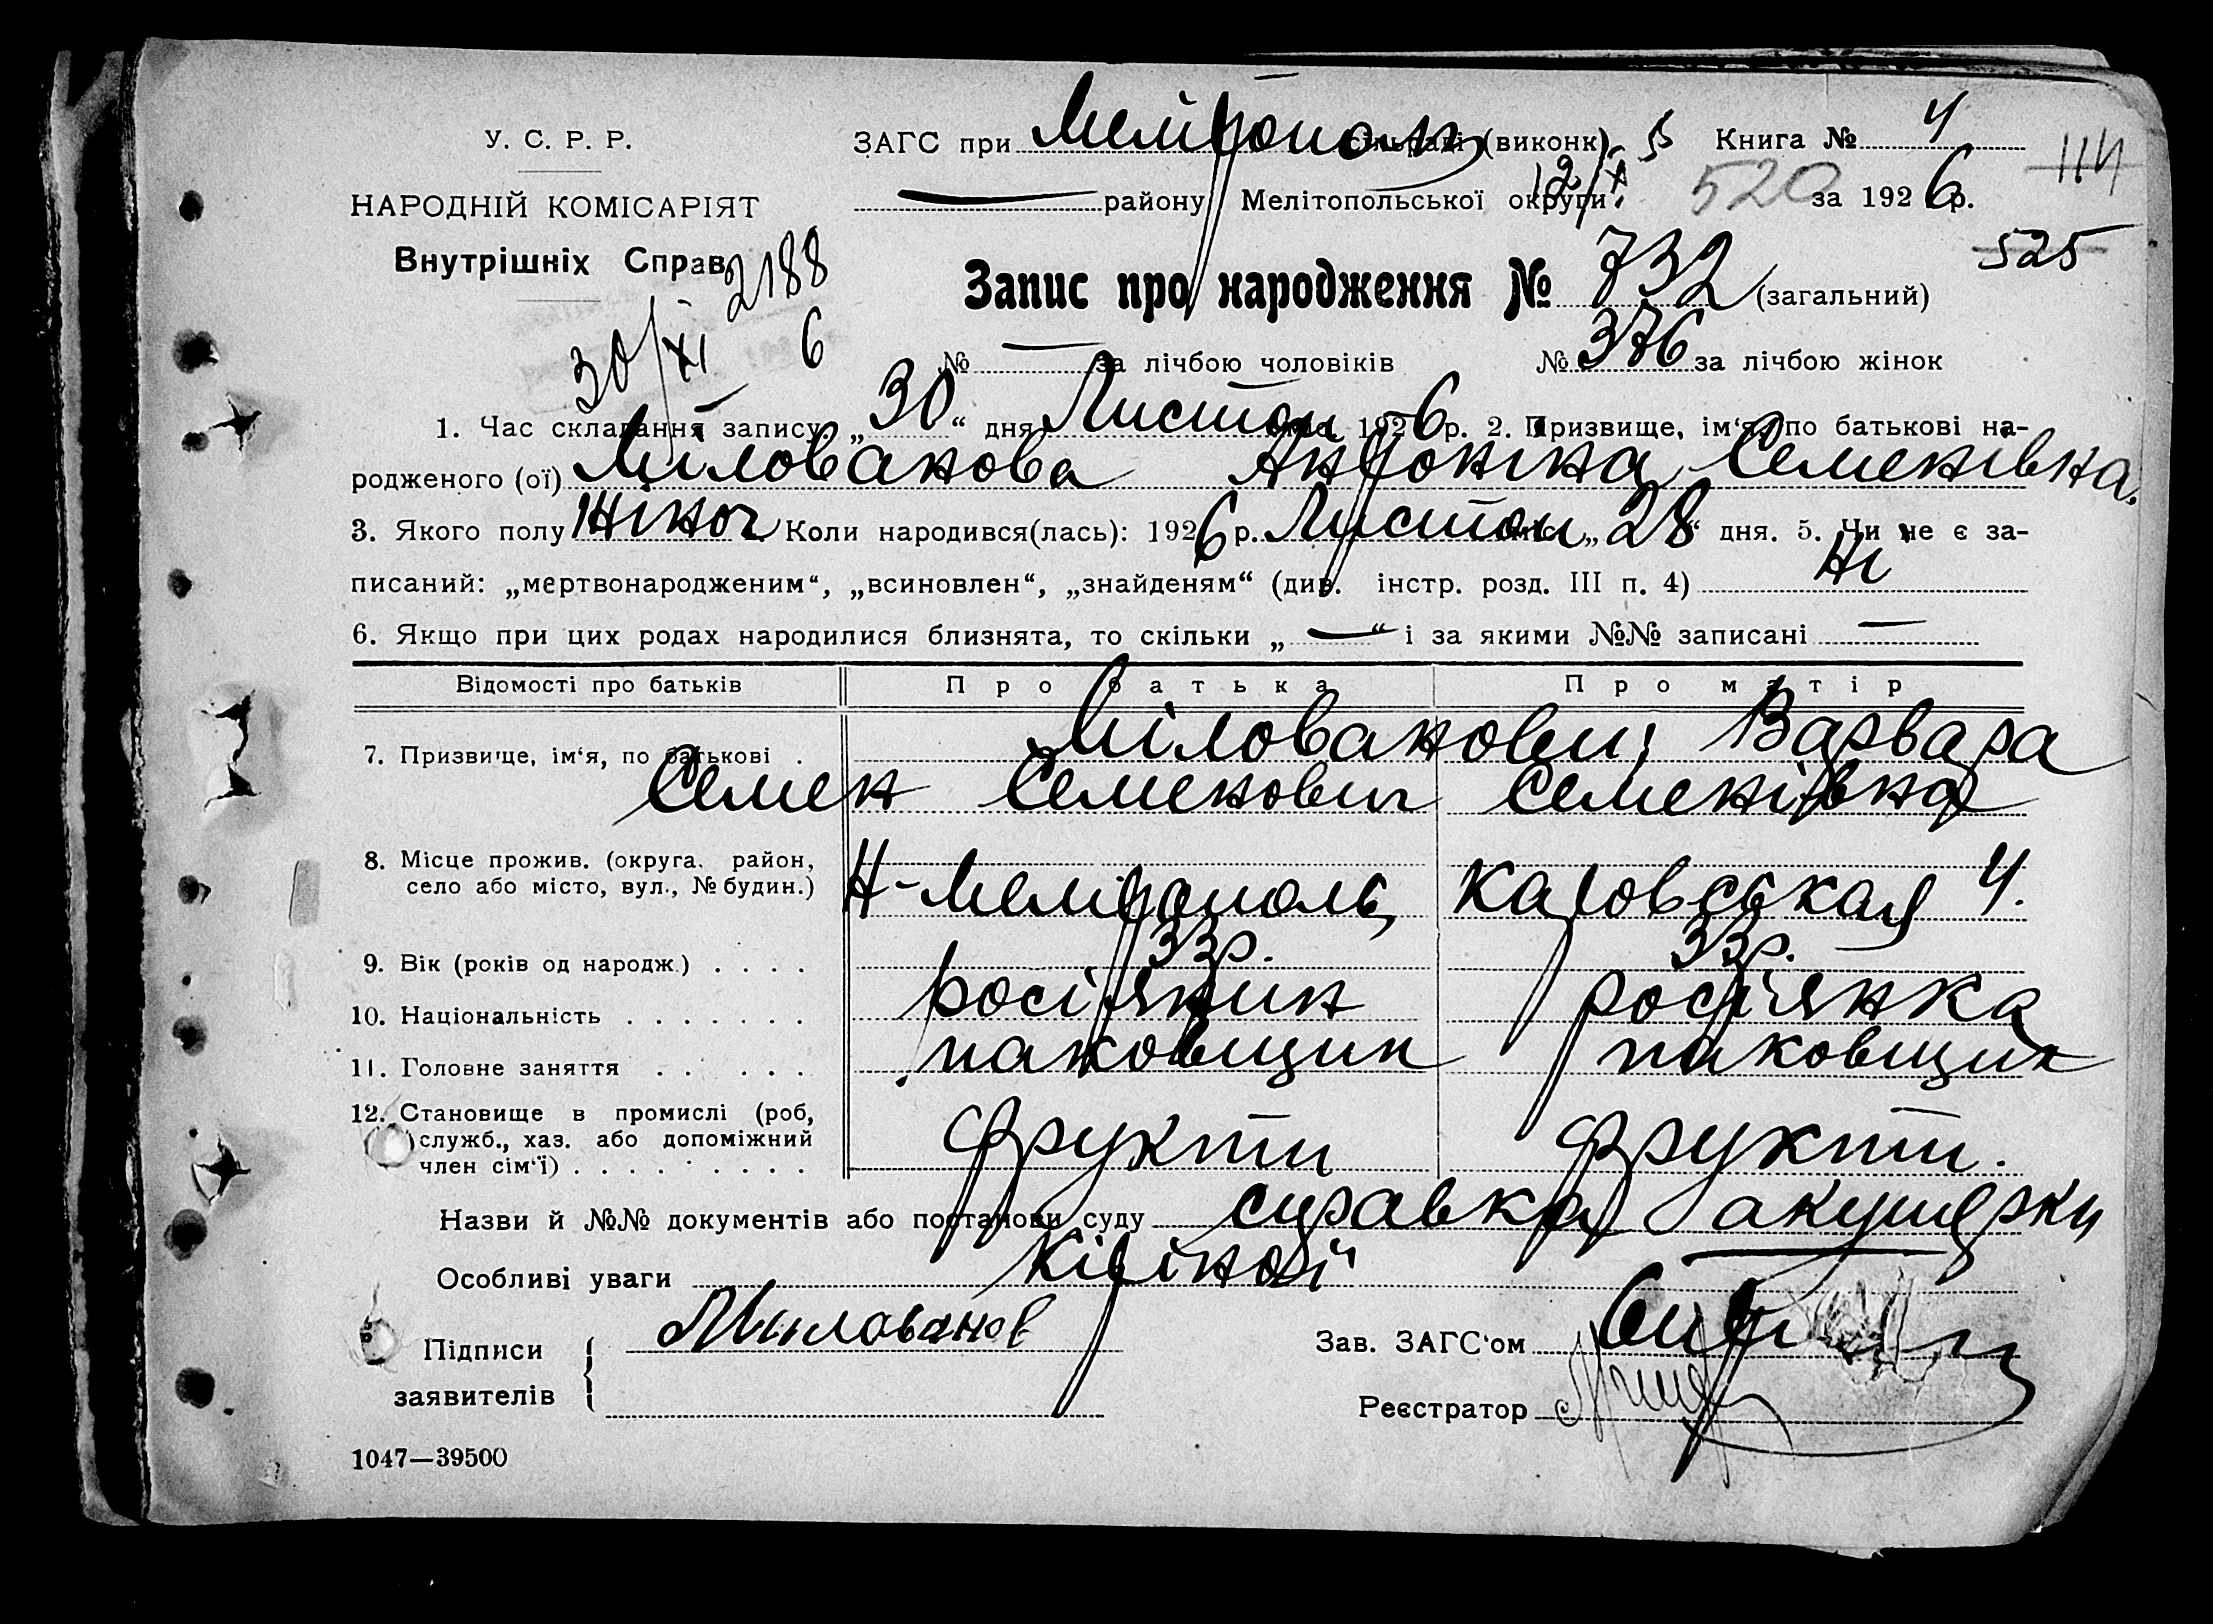 У. С. Р. Р.
НАРОДНІЙ КОМІСАРІЯТ
Внутрішніх Справ
2188
30/XI 6
ЗАГС при Мелітополь сільраді (виконк) Книга № 4
— району Мелітопольської округи 520 за 1926 р.
114
525
Запис про народження № 732 (загальний)
№ — за лічбою чоловіків № 376 за лічбою жінок
1. Час складання запису „30“ дня Листоп міс. 1926 р. 2. Призвище, ім‘я, по батькові на-
родженого (ої) Мілованова Антоніна Семенівна.
3. Якого полу жіноч Коли народився(лась): 1926 р. Листоп міс. „28“ дня. 5. Чи не є за-
писаний: „мертвонародженим“, „всиновлен“, „знайденям“ (див. інстр. розд. III п. 4) Ні
6. Якщо при цих родах народилися близнята, то скільки „—“ і за якими №№ записані —
Відомості про батьків Про батька Про матір
7. Призвище, ім‘я, по батькові . Міловановы; Варвара
Семен Семенович Семенівна
8. Місце прожив. (округа, район,
село або місто, вул., № будин.) Н-Мелітополь, 4.
9. Вік (років од народж.) . . . . 33р. 33р.
10. Національність . . . . . . . росіянин росіянка
11. Головне заняття . . . . . паковщик паковщик
12. Становище в промислі (роб,
служб., хаз. або допоміжний
член сім‘ї) . . . . . . . . . фрукти фрукти.
Назви й №№ документів або постанови суду справка акушерки
Особливі уваги
Підписи
заявителів
Милованов
Зав. ЗАГС‘ом
Реєстратор
1047—39500